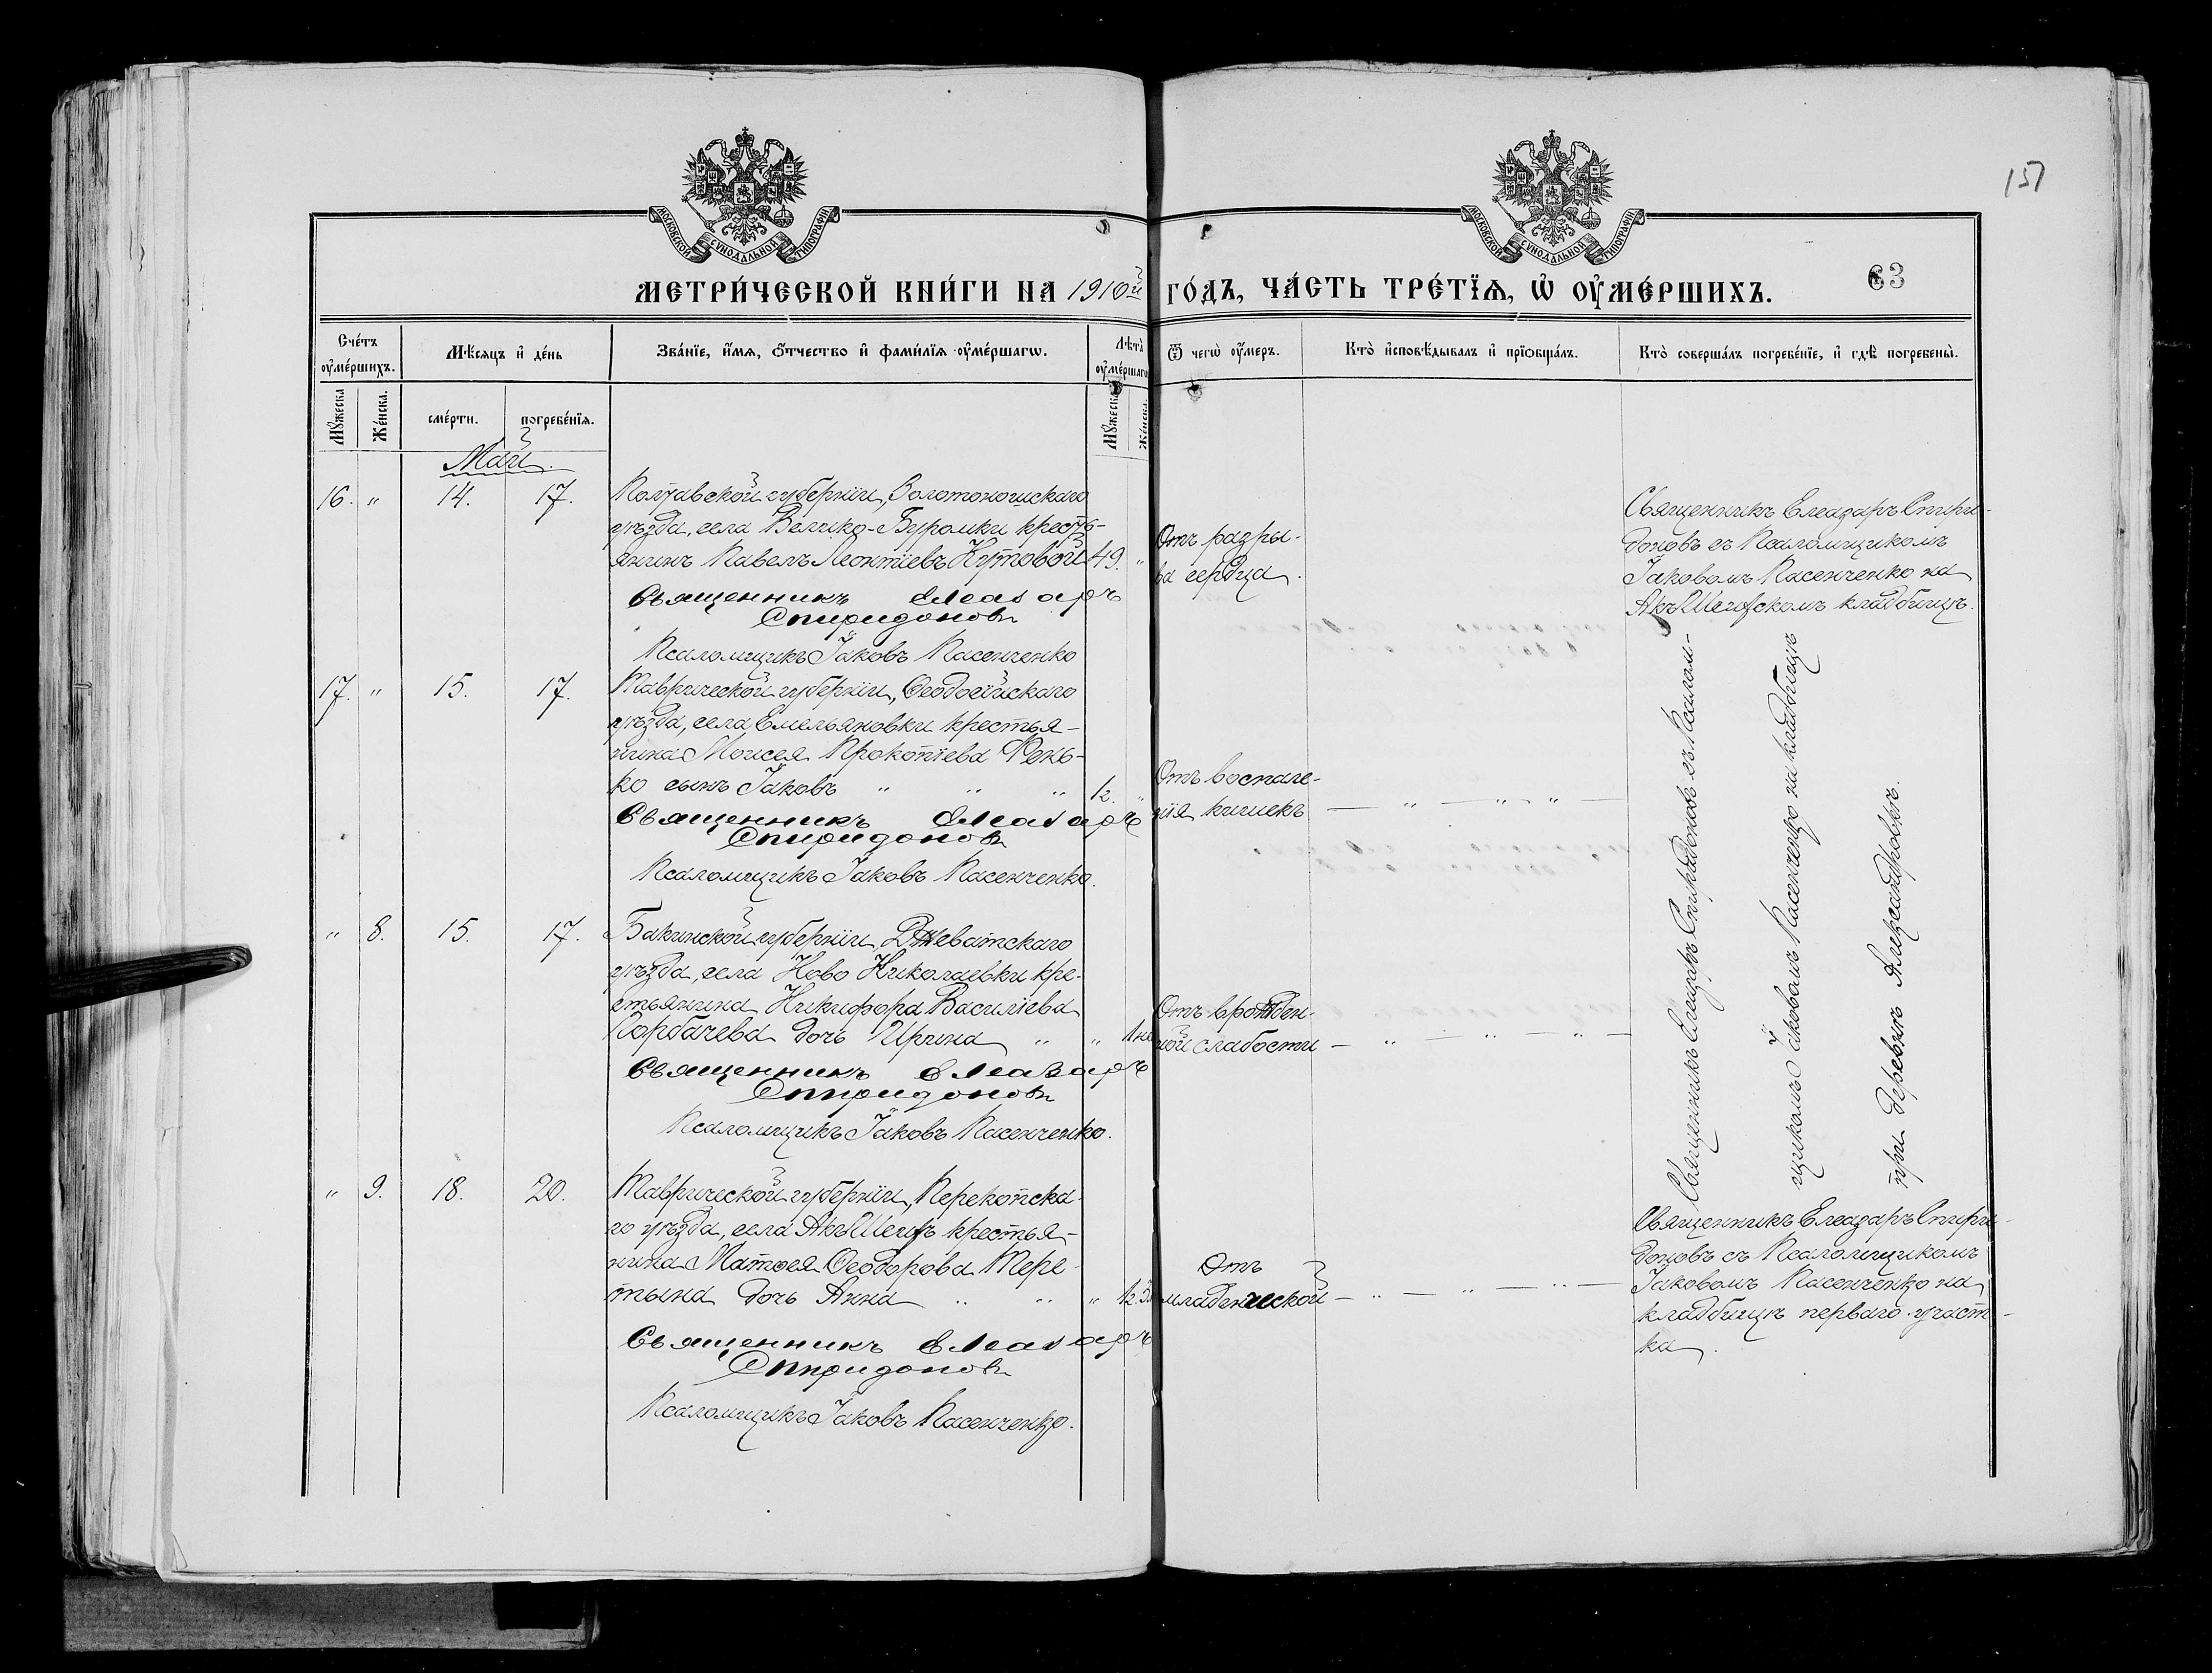 151
МОСКОВСКОЙ СѴНОДАЛЬНОЙ ТИПОГРАФІИ
МОСКОВСКОЙ СѴНОДАЛЬНОЙ ТИПОГРАФІИ
МЕТРИ́ЧЕСКОЙ КНИ́ГИ НА 1910й ГО́ДЪ, ЧА́СТЬ ТРЕ́ТЇѦ, Ѡ҆ ОУ҆МЕ́РШИХЪ.
63
Сче́тъ оу҆ме́ршихъ.
Мѣ́сяцъ и҆ де́нь
Зва́нїе, и҆́мѧ, ѻ҆́тчество и҆ фами́лїѧ оу҆ме́ршагѡ.
Лѣта̀ оу҆ме́ршагѡ
Ѿ чегѡ̀ оу҆́меръ.
Кто̀ и҆сповѣ́дывалъ и҆ прїѻбща́лъ.
Кто̀ соверша́лъ погребе́нїе, и҆ гдѣ̀ погребены̀.
Мꙋ́жеска
Же́нска.
сме́рти.
погребе́нїѧ.
Мꙋ́жеска
Же́нска.
Май.
16. " 14. 17.
Полтавской губерніи, Золотоношскаго
уѣзда, села Велико-Буромки кресть-
янинъ Павелъ Леонтіевъ Кутовой 49. "
Священникъ Елеазаръ
Спиридоновъ
Псаломщикъ Іаковъ Пасенченко
Отъ разры-
ва сердца.
Священникъ Елеазаръ Спири-
доновъ съ Псаломщикомъ
Іаковомъ Пасенченко на
Акъ-Шеихскомъ кладбищѣ.
17. " 15. 17.
Таврической губерніи, Ѳеодосійскаго
уѣзда, села Емельяновки крестья-
нина Моисея Прокопіева Фень-
ко сынъ Іаковъ " " " ½. "
Священникъ Елеазаръ
Спиридоновъ
Псаломщикъ Іаковъ Пасенченко.
Отъ воспале-
нія кишекъ — " — " — " —
Священникъ Елеазаръ Спиридоновъ съ Псалом-
щикомъ Іаковомъ Пасенченко на кладбищѣ
при деревнѣ Александровкѣ.
" 8. 15. 17.
Бакинской губерніи, Джеватскаго
уѣзда, села Ново Николаевки кре-
стьянина Никифора Василіева
Горбачева дочь Ирина " " 1 не
Священникъ Елеазаръ
Спиридоновъ
Псаломщикъ Іаковъ Пасенченко.
Отъ врожден-
ной слабости — " — " — " —
" 9. 18. 20.
Таврической губерніи, Перекопска-
го уѣзда, села Акъ-Шеихъ крестья-
нина Матѳея Ѳеодорова Тере-
тына дочь Анна " " " 12 дн
Священникъ Елеазаръ
Спиридоновъ
Псаломщикъ Іаковъ Пасенченко.
Отъ
младенческой — " — " — " —
Священникъ Елеазаръ Спири-
доновъ съ Псаломщикомъ
Іаковомъ Пасенченко на
кладбищѣ перваго участ-
ка.